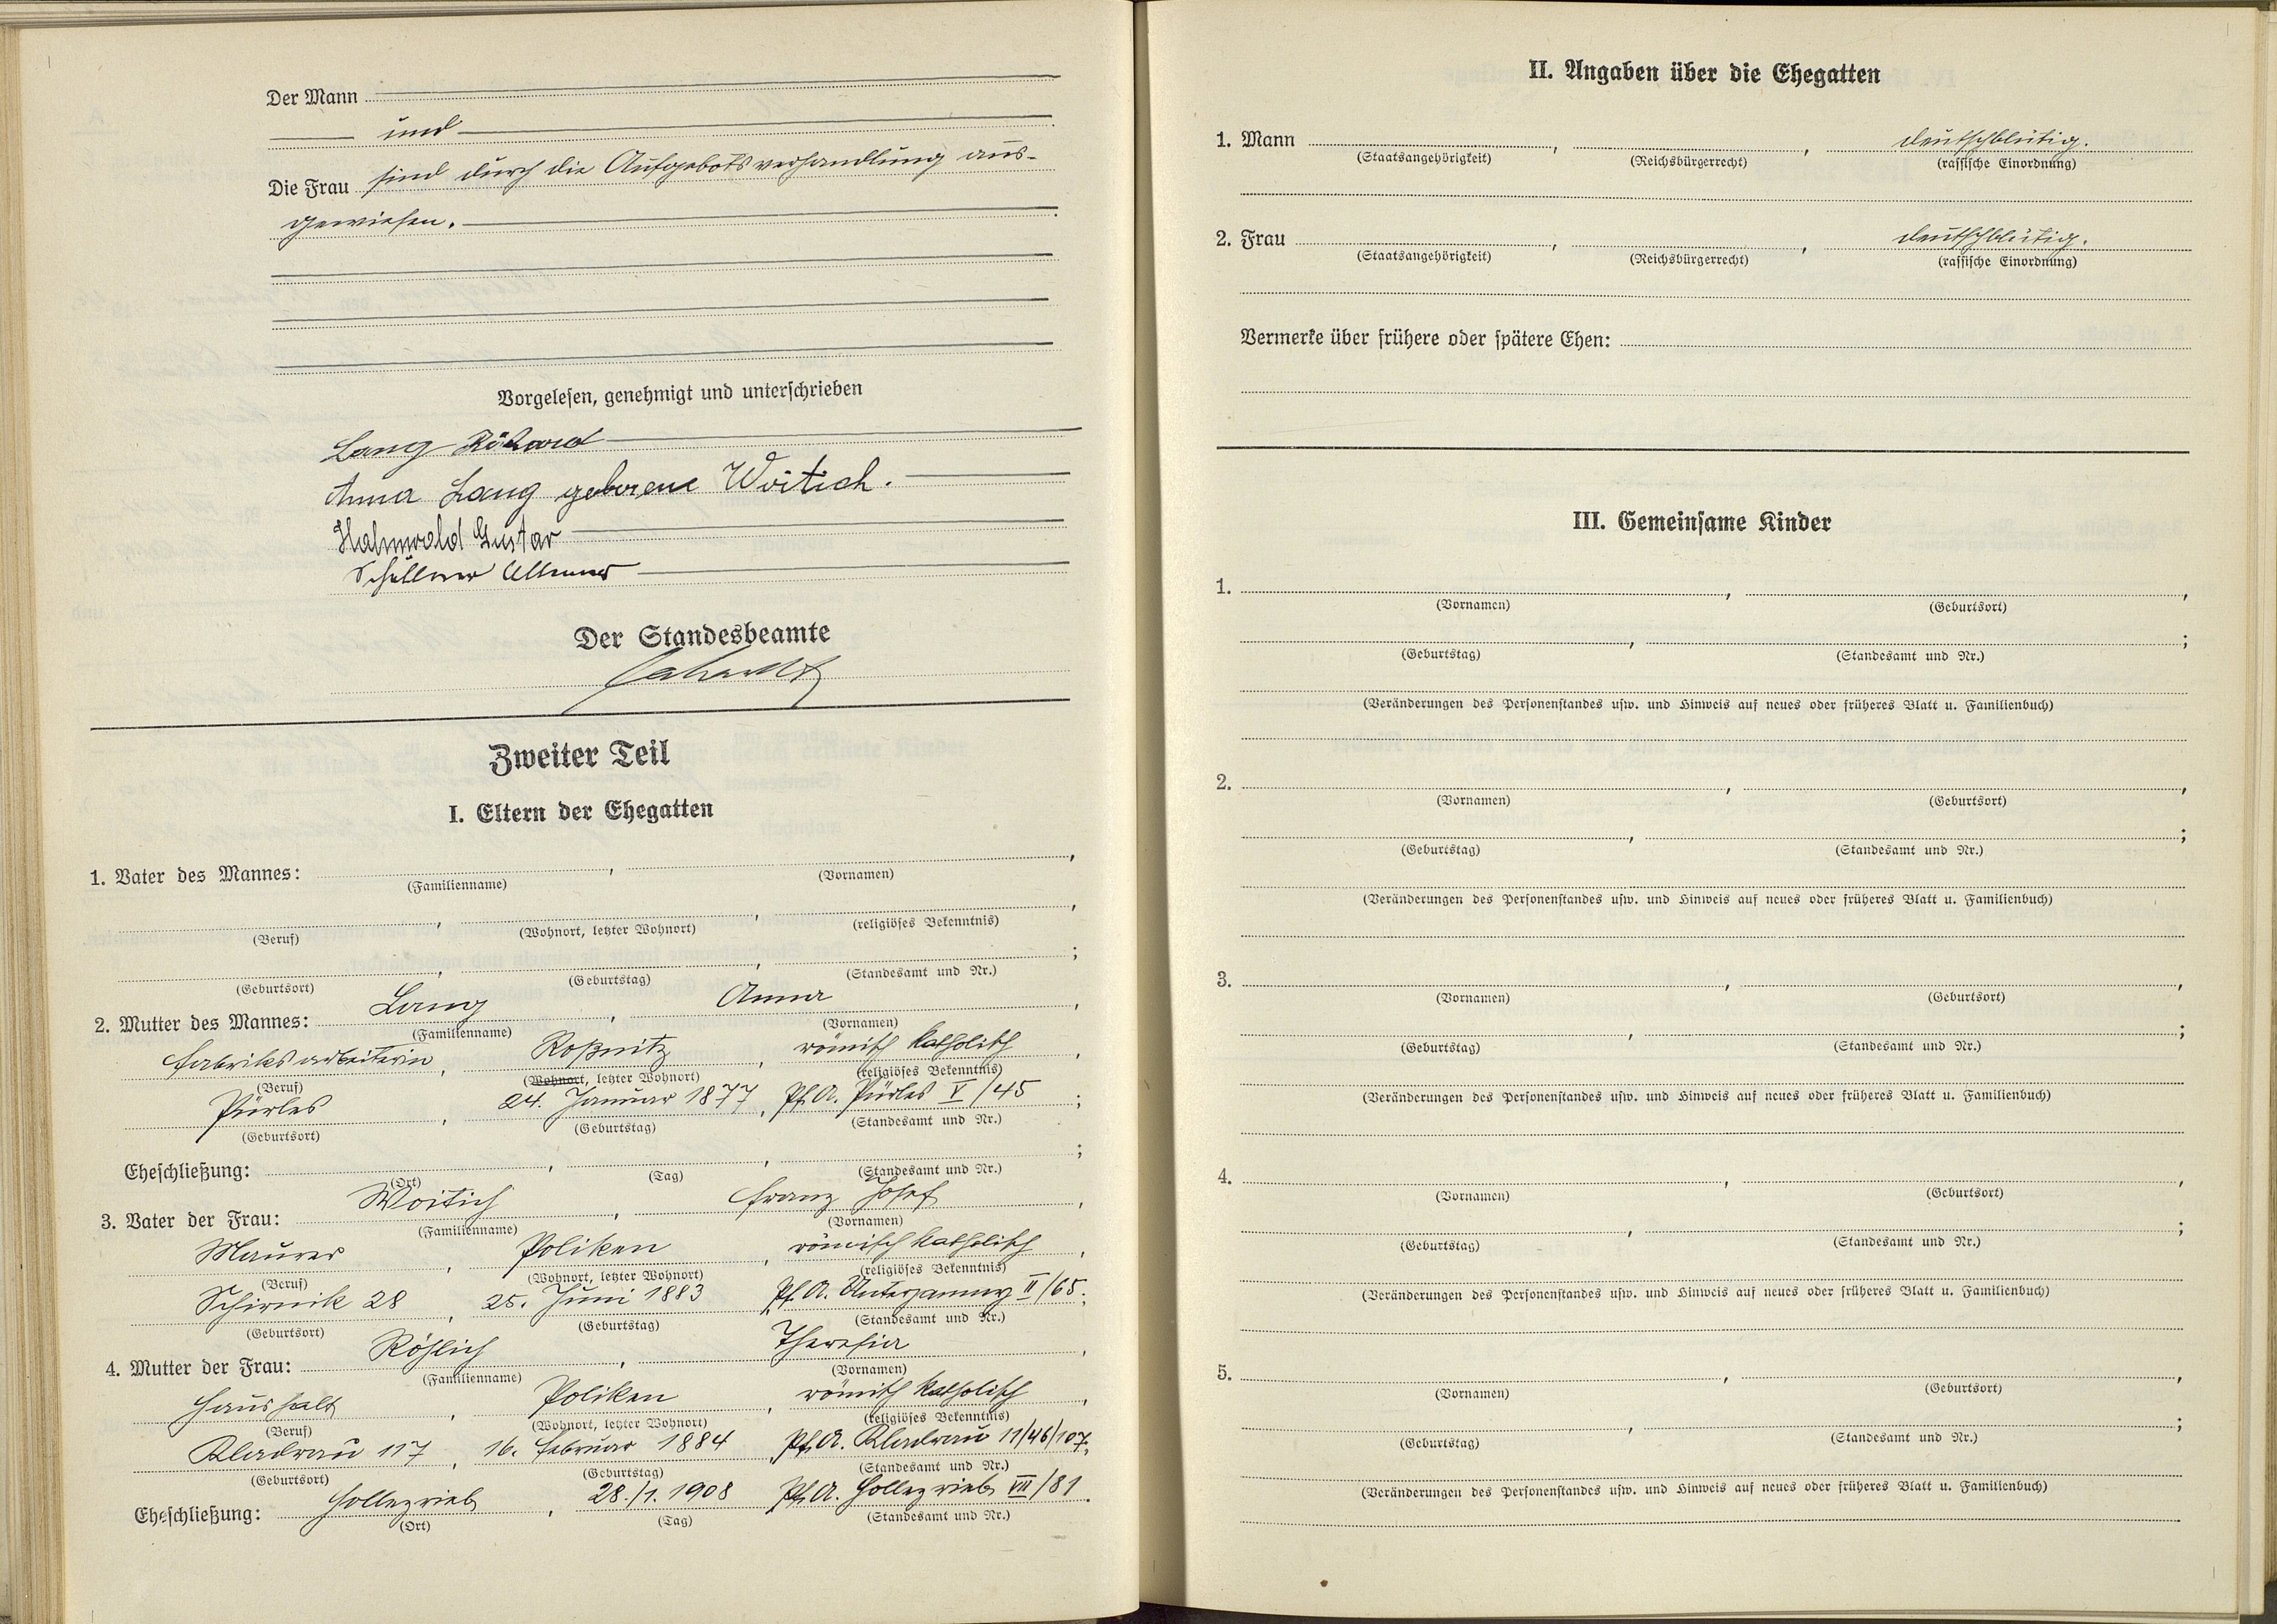 Der Mann
und
Die Frau sind durch die Aufgebotsverhandlung aus-
gewiesen.
Vorgelesen, genehmigt und unterschrieben
Lang Richard
Anna Lang geborene Woitich.
Hahnwald Gustav
Der Standesbeamte
Zweiter Teil
I. Eltern der Ehegatten
1. Vater des Mannes: , ,
(Familienname) (Vornamen)
, , ,
(Beruf) (Wohnort, letzter Wohnort) (religiöses Bekenntnis)
, , ;
(Geburtsort) (Geburtstag) (Standesamt und Nr.)
2. Mutter des Mannes: Lang , Anna ,
(Familienname) (Vornamen)
Fabriksarbeiterin , Roßnitz , römisch katholisch ,
(Beruf) (Wohnort, letzter Wohnort) (religiöses Bekenntnis)
Pürles , 24. Januar 1877 , Pf. A. Pürles V/45 ;
(Geburtsort) (Geburtstag) (Standesamt und Nr.)
Eheschließung: , , ;
(Ort) (Tag) (Standesamt und Nr.)
3. Vater der Frau: Woitich , Franz Josef ,
(Familienname) (Vornamen)
Maurer , Poliken , römisch katholisch ,
(Beruf) (Wohnort, letzter Wohnort) (religiöses Bekenntnis)
Schirnik 28 , 25. Juni 1883 , Pf. A. Unterjamny II/65 ;
(Geburtsort) (Geburtstag) (Standesamt und Nr.)
4. Mutter der Frau: Röhlich , Theresia ,
(Familienname) (Vornamen)
Haushalt , Poliken , römisch katholisch ,
(Beruf) (Wohnort, letzter Wohnort) (religiöses Bekenntnis)
Kladrau 117 , 16. Februar 1884 , Pf. A. Kladrau 11/46/107 ;
(Geburtsort) (Geburtstag) (Standesamt und Nr.)
Eheschließung: Gollezrieb , 28./1. 1908 Pf. A. Gollezrieb VII/81 .
(Ort) (Tag) (Standesamt und Nr.)
II. Angaben über die Ehegatten
1. Mann , , deutschblütig.
(Staatsangehörigkeit) (Reichsbürgerrecht) (rassische Einordnung)
2. Frau , , deutschblütig.
(Staatsangehörigkeit) (Reichsbürgerrecht) (rassische Einordnung)
Vermerke über frühere oder spätere Ehen:
III. Gemeinsame Kinder
1. , ,
(Vornamen) (Geburtsort)
, ;
(Geburtstag) (Standesamt und Nr.)
(Veränderungen des Personenstandes usw. und Hinweis auf neues oder früheres Blatt u. Familienbuch)
2. , ,
(Vornamen) (Geburtsort)
, ;
(Geburtstag) (Standesamt und Nr.)
(Veränderungen des Personenstandes usw. und Hinweis auf neues oder früheres Blatt u. Familienbuch)
3. , ,
(Vornamen) (Geburtsort)
, ;
(Geburtstag) (Standesamt und Nr.)
(Veränderungen des Personenstandes usw. und Hinweis auf neues oder früheres Blatt u. Familienbuch)
4. , ,
(Vornamen) (Geburtsort)
, ;
(Geburtstag) (Standesamt und Nr.)
(Veränderungen des Personenstandes usw. und Hinweis auf neues oder früheres Blatt u. Familienbuch)
5. , ,
(Vornamen) (Geburtsort)
, ;
(Geburtstag) (Standesamt und Nr.)
(Veränderungen des Personenstandes usw. und Hinweis auf neues oder früheres Blatt u. Familienbuch)